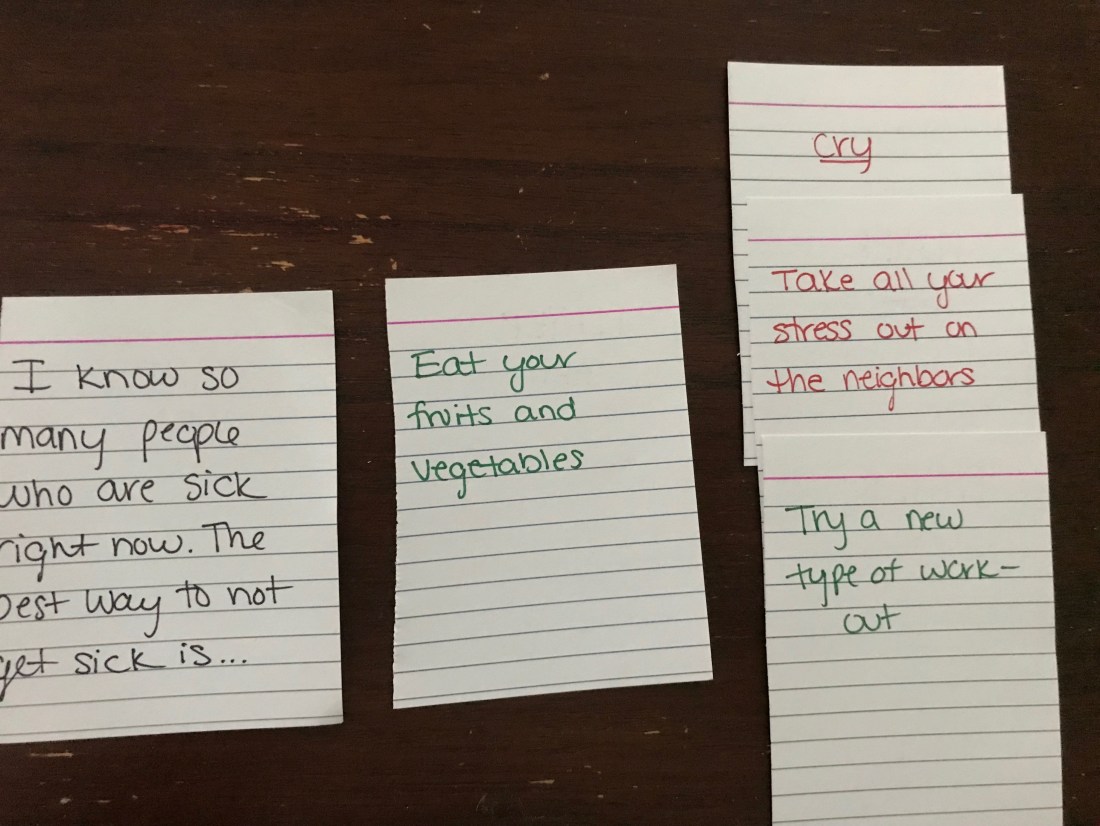 I know so
many people
who are sick
right now. The
best way to not
get sick is...
Eat your
fruits and
vegetables
cry
Take all your
stress out on
the neighbors
Try a new
type of work-
out